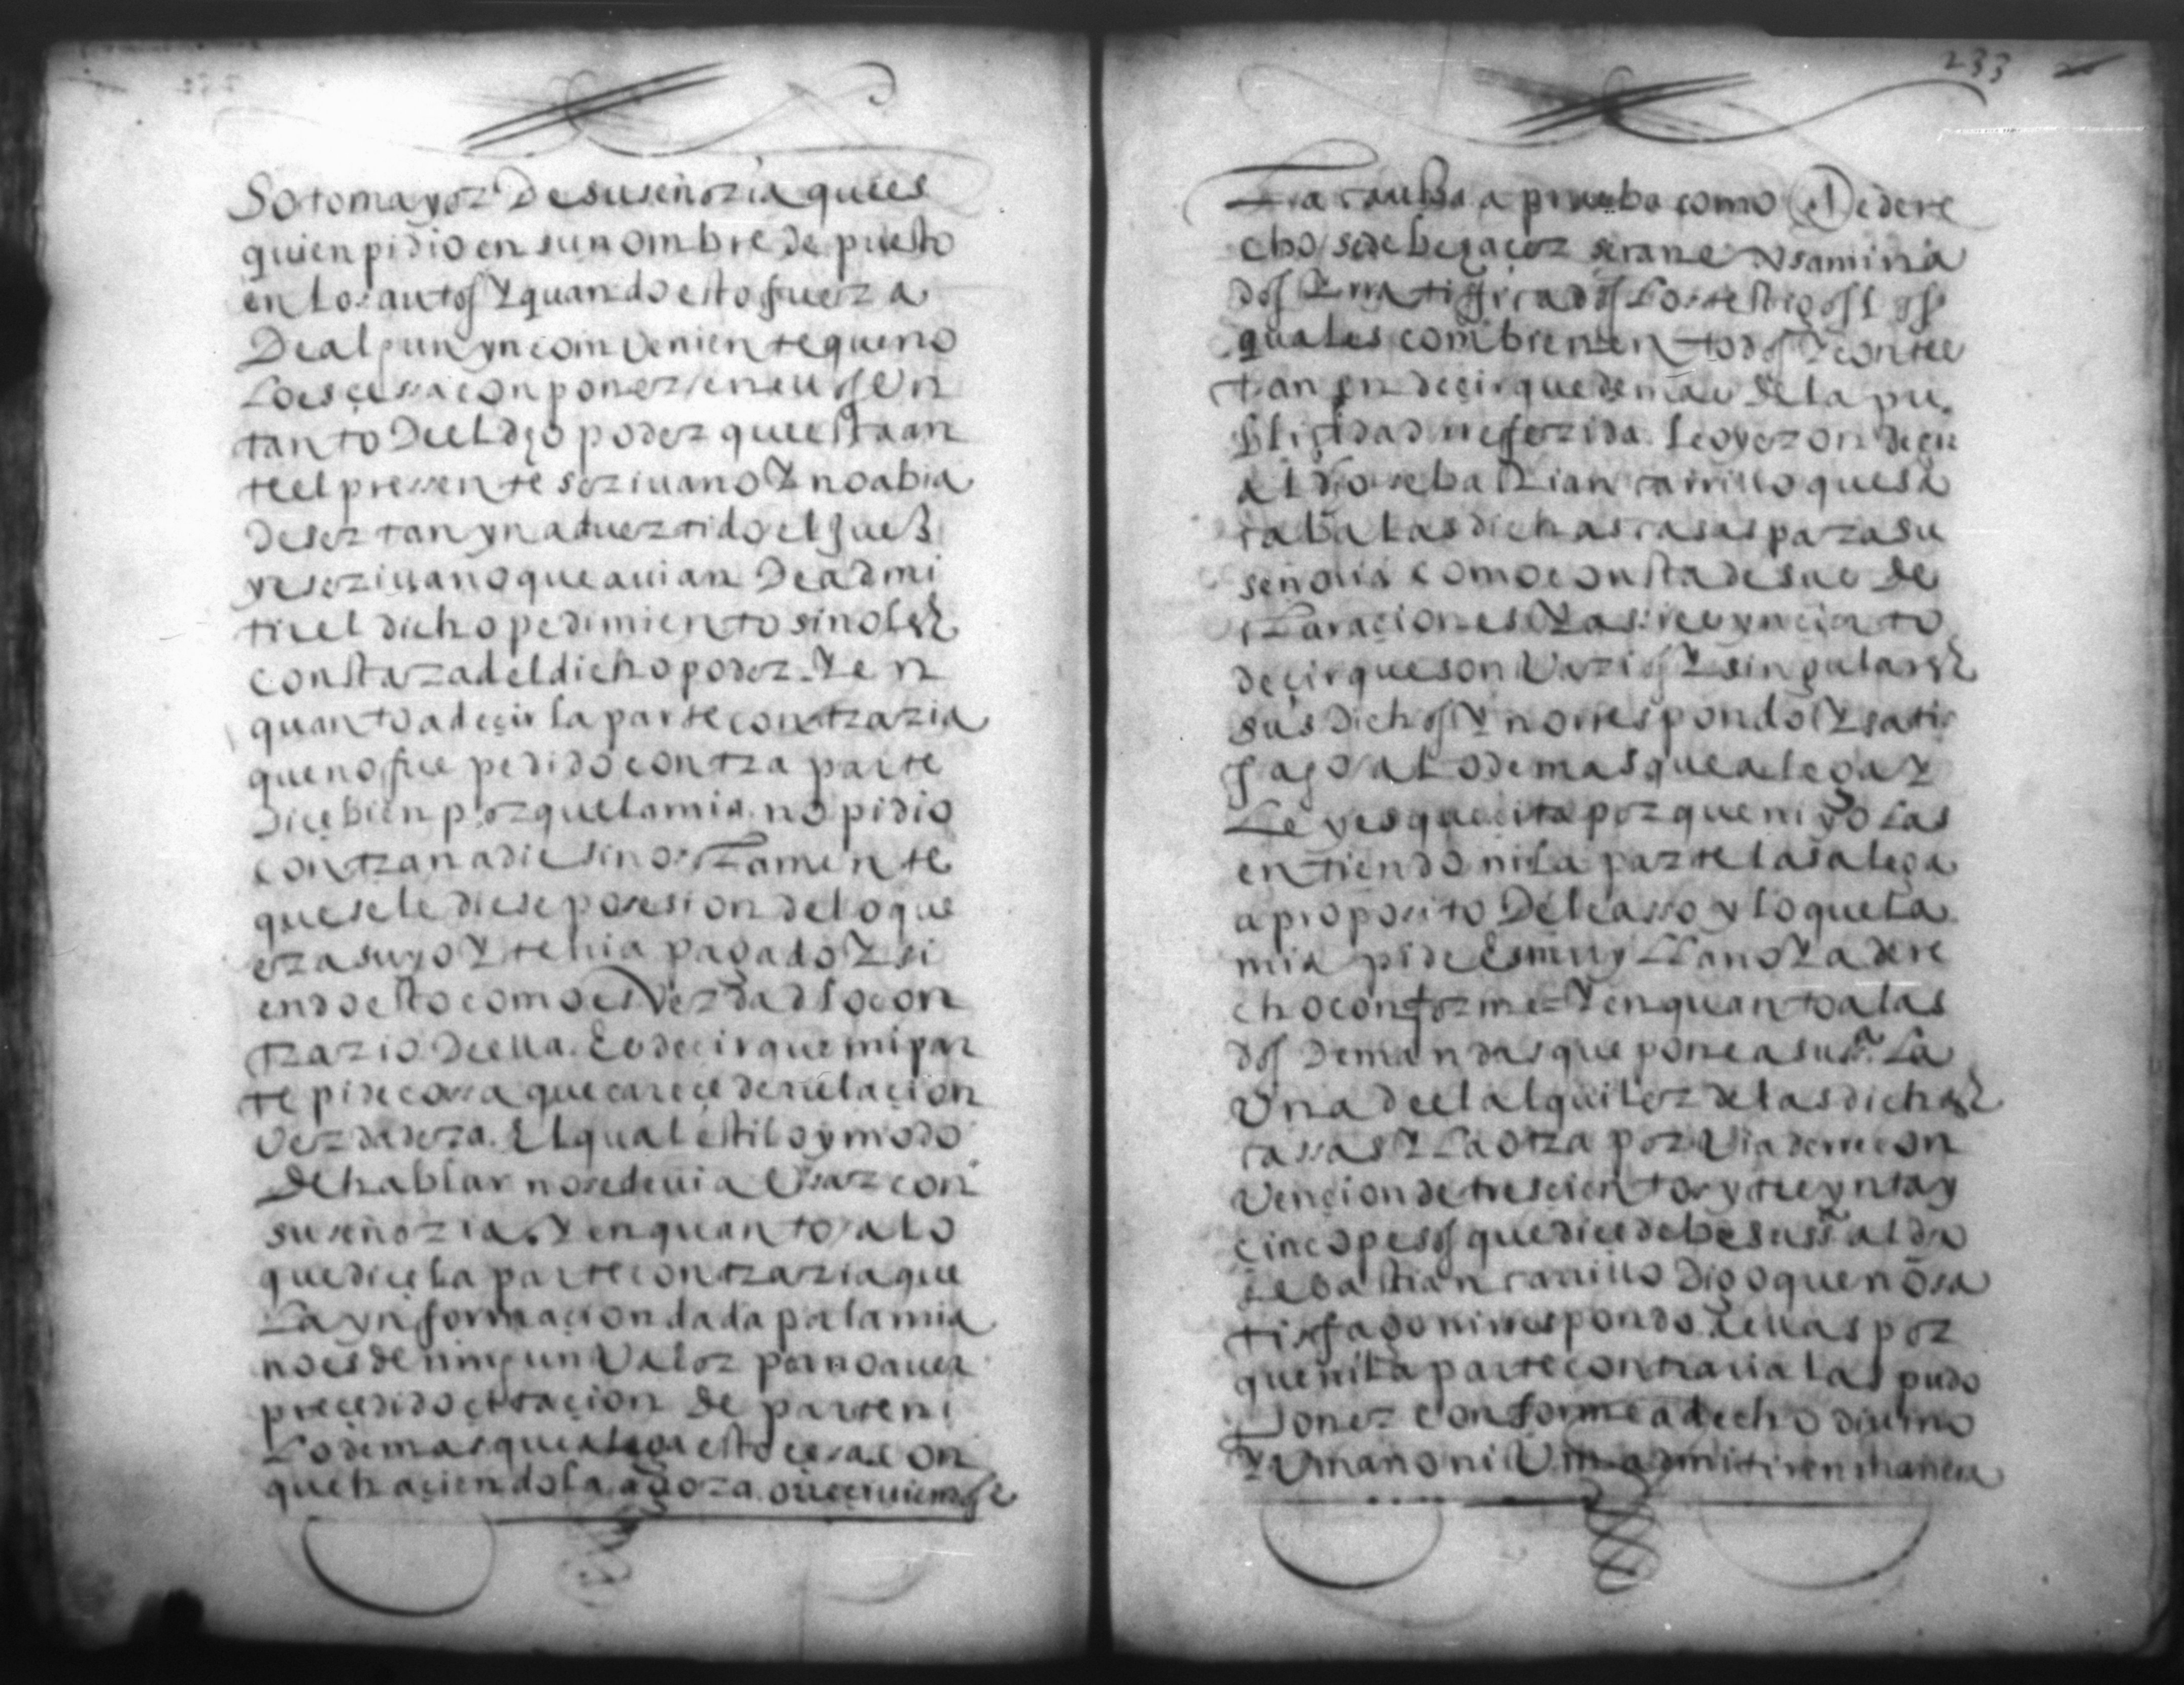 Sotomayor De su señoria que es
quien pidio en su nombre de puesto
en los autos Y quando esto fuera
De algun ynconveniente que no
lo es cessa con poner en eu
tanto Del dho poder que esta an
te el pressente scriuano Y no abia
de ser tan ynaduertido el Juez
y escriuano que auian De admi
tir el dicho pedimiento sino les
constara del dicho poder. Y en
quanto a deçir la parte contraria
que no fue pedido contra parte
Diçe bien porque la mia no pidio
contra nadie sino
que se le diese possesion de lo que
era suyo Y tenia pagado Y si
endo esto como es Verdad lo con
trario De ella. Es deçir que mi par
te pide cossa que careçe de relaçion
Verdadera. El qual estilo y modo
De hablar no se deuia Ussar con
su señoria. Y en quanto a lo
que diçe la parte contraria que
La ynformaçion dada por la mia
no es de ningun Valor por no auer
preçedido çitaçion de parte ni
lo demas que alega esto çessa con
que haçiendola agora
233
La caussa a prueba como De dere
cho se debe haçer seran examina
dos Y rratificados los testigos los
quales combienen todos Y contes
tan en deçir que demas de la pu
bliçidad rreferida le oyeron deçir
al dho sebastian carrillo que sa
caba las dichas casas para su
señoria como consta de sus de
claraçiones Y assi es ynçierto
deçir que son Varios Y singulares
sus dichos Y no rrespondo Y satis
fago a lo demas que alega Y
Leyes que çita porque ni yo las
entiendo ni la parte las alega
a proposito Del casso y lo que la
mia pide Es muy LLano Y a dere
cho conforme = Y en quanto a las
dos Demandas que pone a su sª. La
Una de el alquiler de las dichas
cassas Y La otra por Via de rrecon
Vençion de tresçientos y treynta y
çinco pesos que diçe debe su sª al dho
sebastian carrillo Digo que no sa
tisfago ni rrespondo a ellas por
que ni la parte contraria las pudo
poner conforme a decho diuino
Y Umano ni Vm admitir en manera